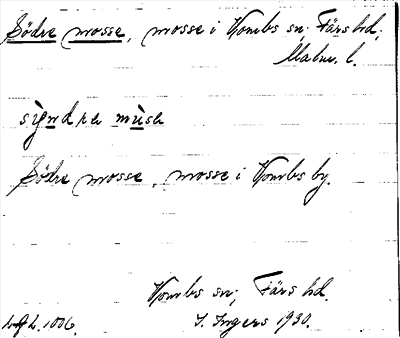 Södre mosse, mosse i Vombs sn; Färs hd;
Malm. l.
sìgndre mùsa
Södre mosse, mosse i Vombs by.
Vombs sn; Färs hd.
I. Ingers 1930.